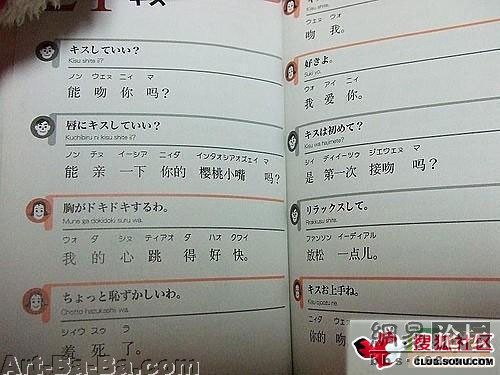 キス
キスしていい?
Kisu shite ii?
ノン ウェヌ ニィ マ
能 吻 你 吗?
唇にキスしていい?
Kuchibiru ni kisu shite ii?
ノン チヌ イーシア ニィダ インタオシアオズェイ マ
能 亲 一下 你的 樱桃小嘴 吗?
胸がドキドキするわ。
Mune ga dokidoki suru wa.
ウォ ダ シヌ ティアオ ダ ハオ クワイ
我 的 心 跳 得 好 快。
ちょっと恥ずかしいわ。
Chotto hazukashii wa.
シィウ スゥ ラ
羞 死 了。
Kisu shite.
ウェヌ ウォ
吻 我。
好きよ。
Suki yo.
ウォ アイ ニィ
我 爱 你。
キスは初めて?
Kisu wa hajimete?
シィ ディイーツゥ ジエウェヌ マ
是 第一次 接吻 吗?
リラックスして。
Rirakkusu shite.
ファンソン イーディアル
放松 一点儿。
キスお上手ね。
Kisu ojozu ne.
ニィダ ウェヌ
你的 吻
Art-Ba-Ba.com
搜狐社区
CLUB.SOHU.COM